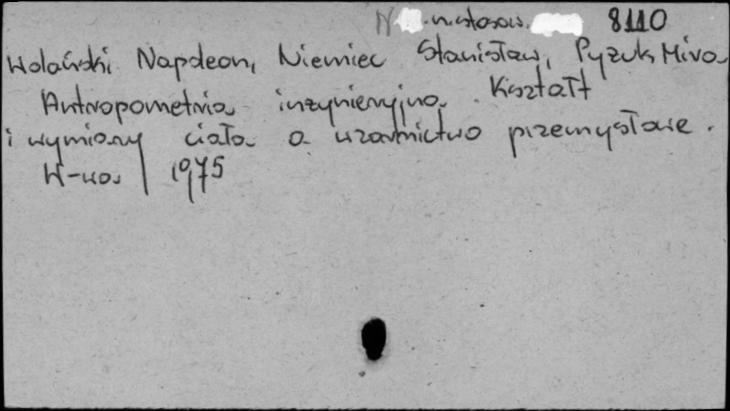 N n. stosow. 8110
Wolański Napoleon, Niemiec Stanisław, Pyzuk Mira
Antropometria inżynieryjna. Kształt
i wymiary ciała a wzornictwo przemysłowe.
W-wa 1975